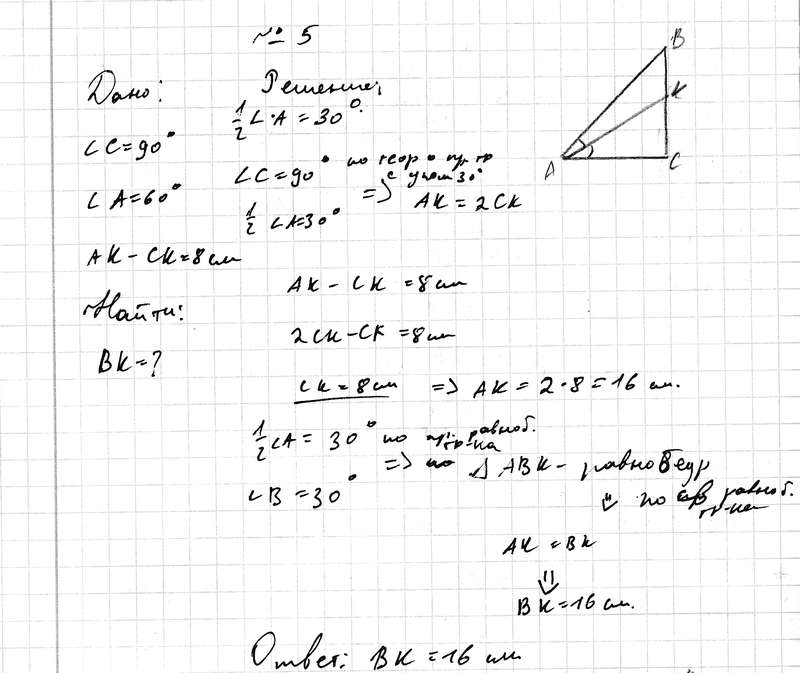 № 5
Дано:
∠C=90°
∠A=60°
AK-CK=8см
Найти:
BK=?
Решение:
1/2∠A=30°.
∠C=90° по теор о пр. тр
с углом 30°
1/2 ∠A=30° => AK=2CK
AK-CK=8см
2CK-CK=8см
CK=8см => AK=2·8=16 см.
1/2∠A=30° по пр. равноб.
тр-ка
=> △ABK- равнобедр
∠B=30°
⇓ по св равноб.
тр-ка
AK=BK
⇓
BK=16 см.
Ответ: BK=16 см
B
K
A
C